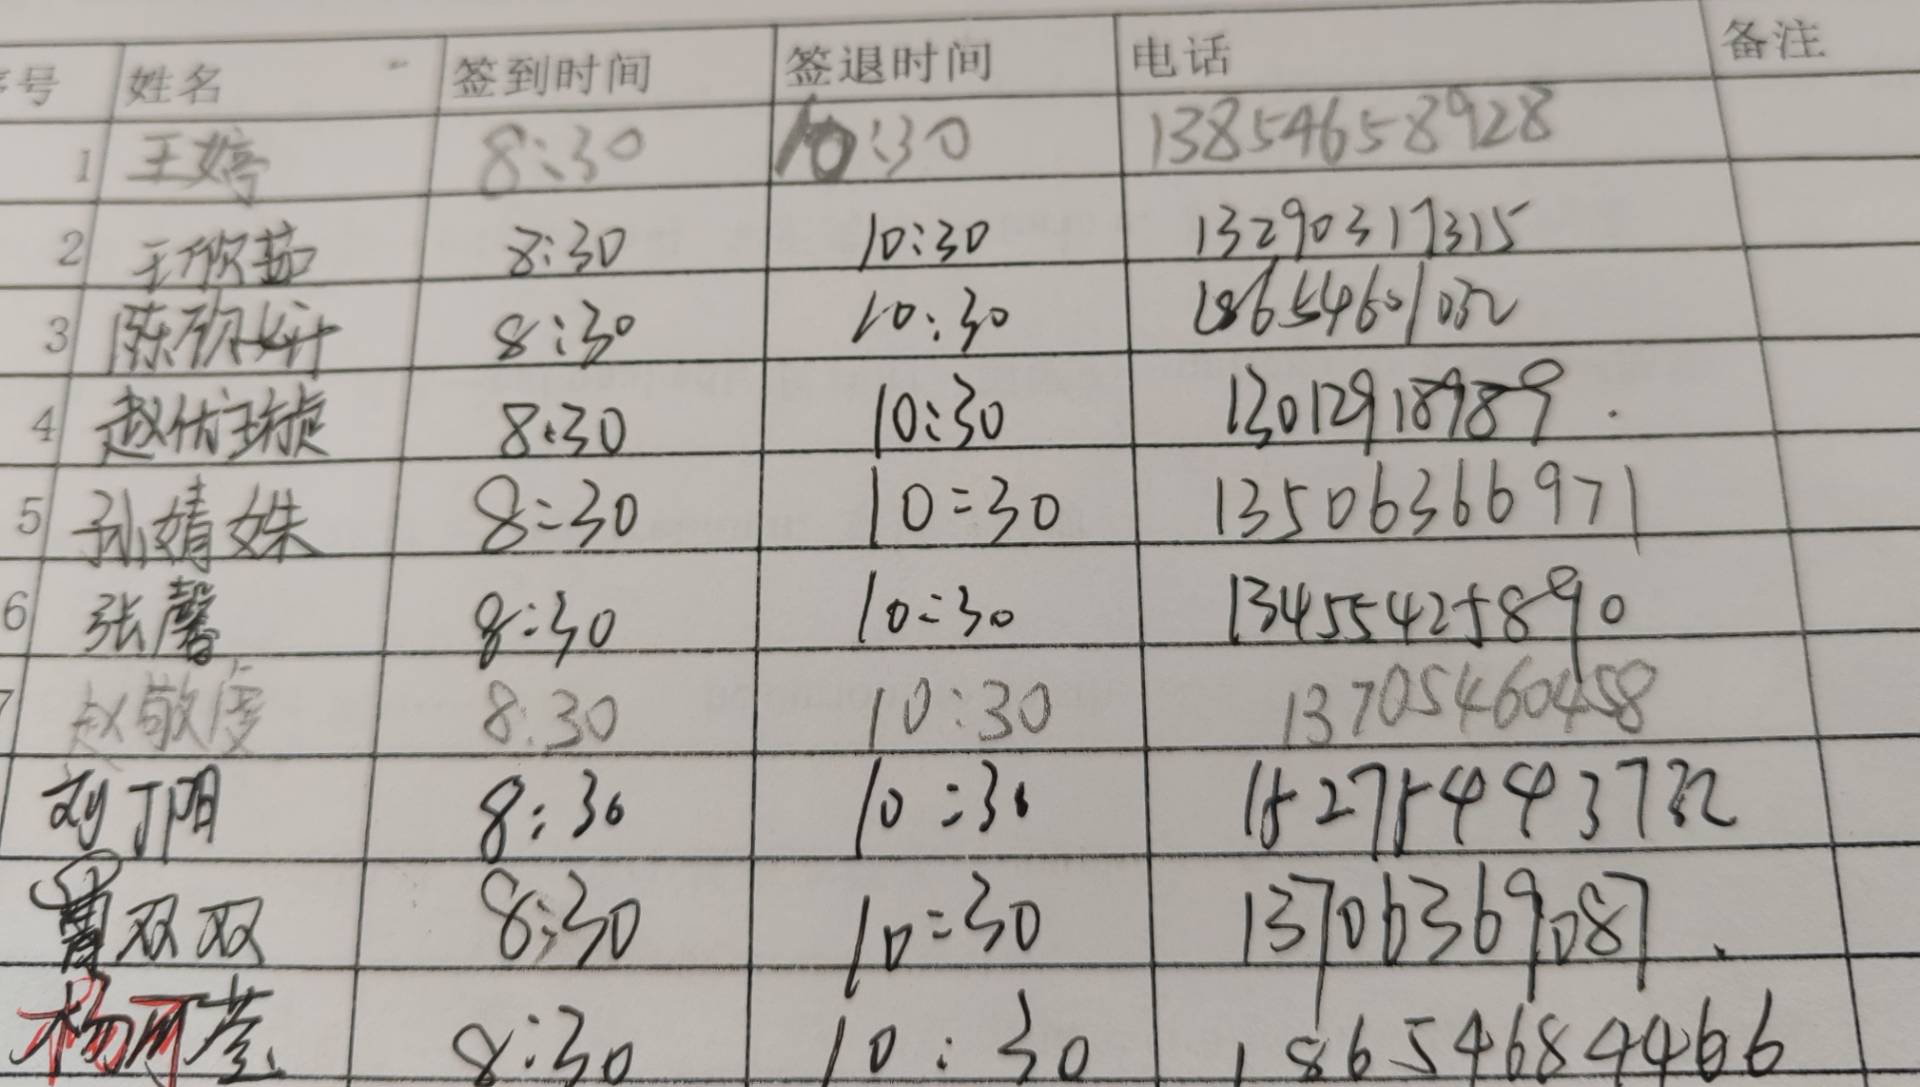 序号 姓名 签到时间 签退时间 电话 备注
1 王婷 8:30 10:30 13854658928
2 王欣茹 8:30 10:30 13290317315
3 陈颀妍 8:30 10:30 18654601032
4 赵优璇 8:30 10:30 13012918989
5 孙婧姝 8:30 10:30 13506366971
6 张馨 8:30 10:30 13455425890
7 赵敬虔 8:30 10:30 13705460458
刘丁阳 8:30 10:30 15275443732
曹双双 8:30 10:30 13706369087
杨可莹 8:30 10:30 18654684466